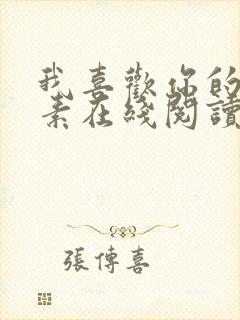 我喜歡你的
素在綫閱讀
張傳喜